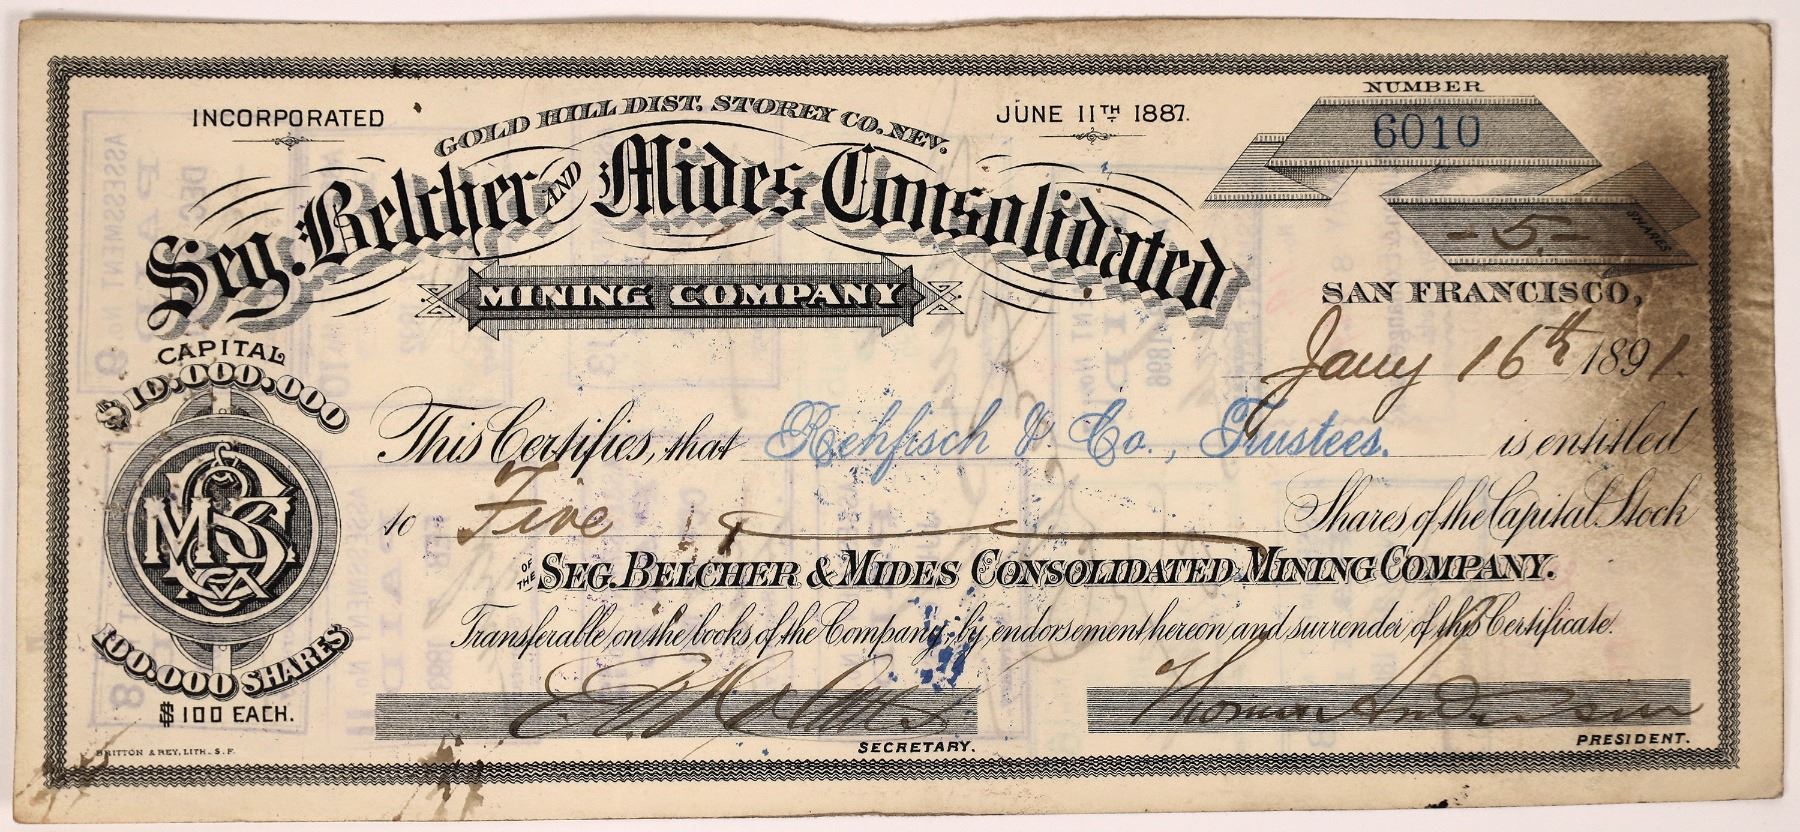 NUMBER
INCORPORATED
GOLD HILL DIST. STOREY CO. NEV.
JUNE 11TH 1887.
6010
Seg. Belcher AND Mides Consolidated
MINING COMPANY
- 5. - SHARES
SAN FRANCISCO,
Jany 16th 1891.
CAPITAL
$10.000.000
This Certifies, that Rehfisch & Co., Trustees. is entitled
to Five Shares of the Capital Stock
OF THE SEG. BELCHER & MIDES CONSOLIDATED MINING COMPANY.
Transferable on the books of the Company, by endorsement hereon and surrender of this Certificate.
MSCO
100.000 SHARES
$100 EACH.
Thomas Anderson
SECRETARY.
PRESIDENT.
BRITTON & REY, LITH. S.F.